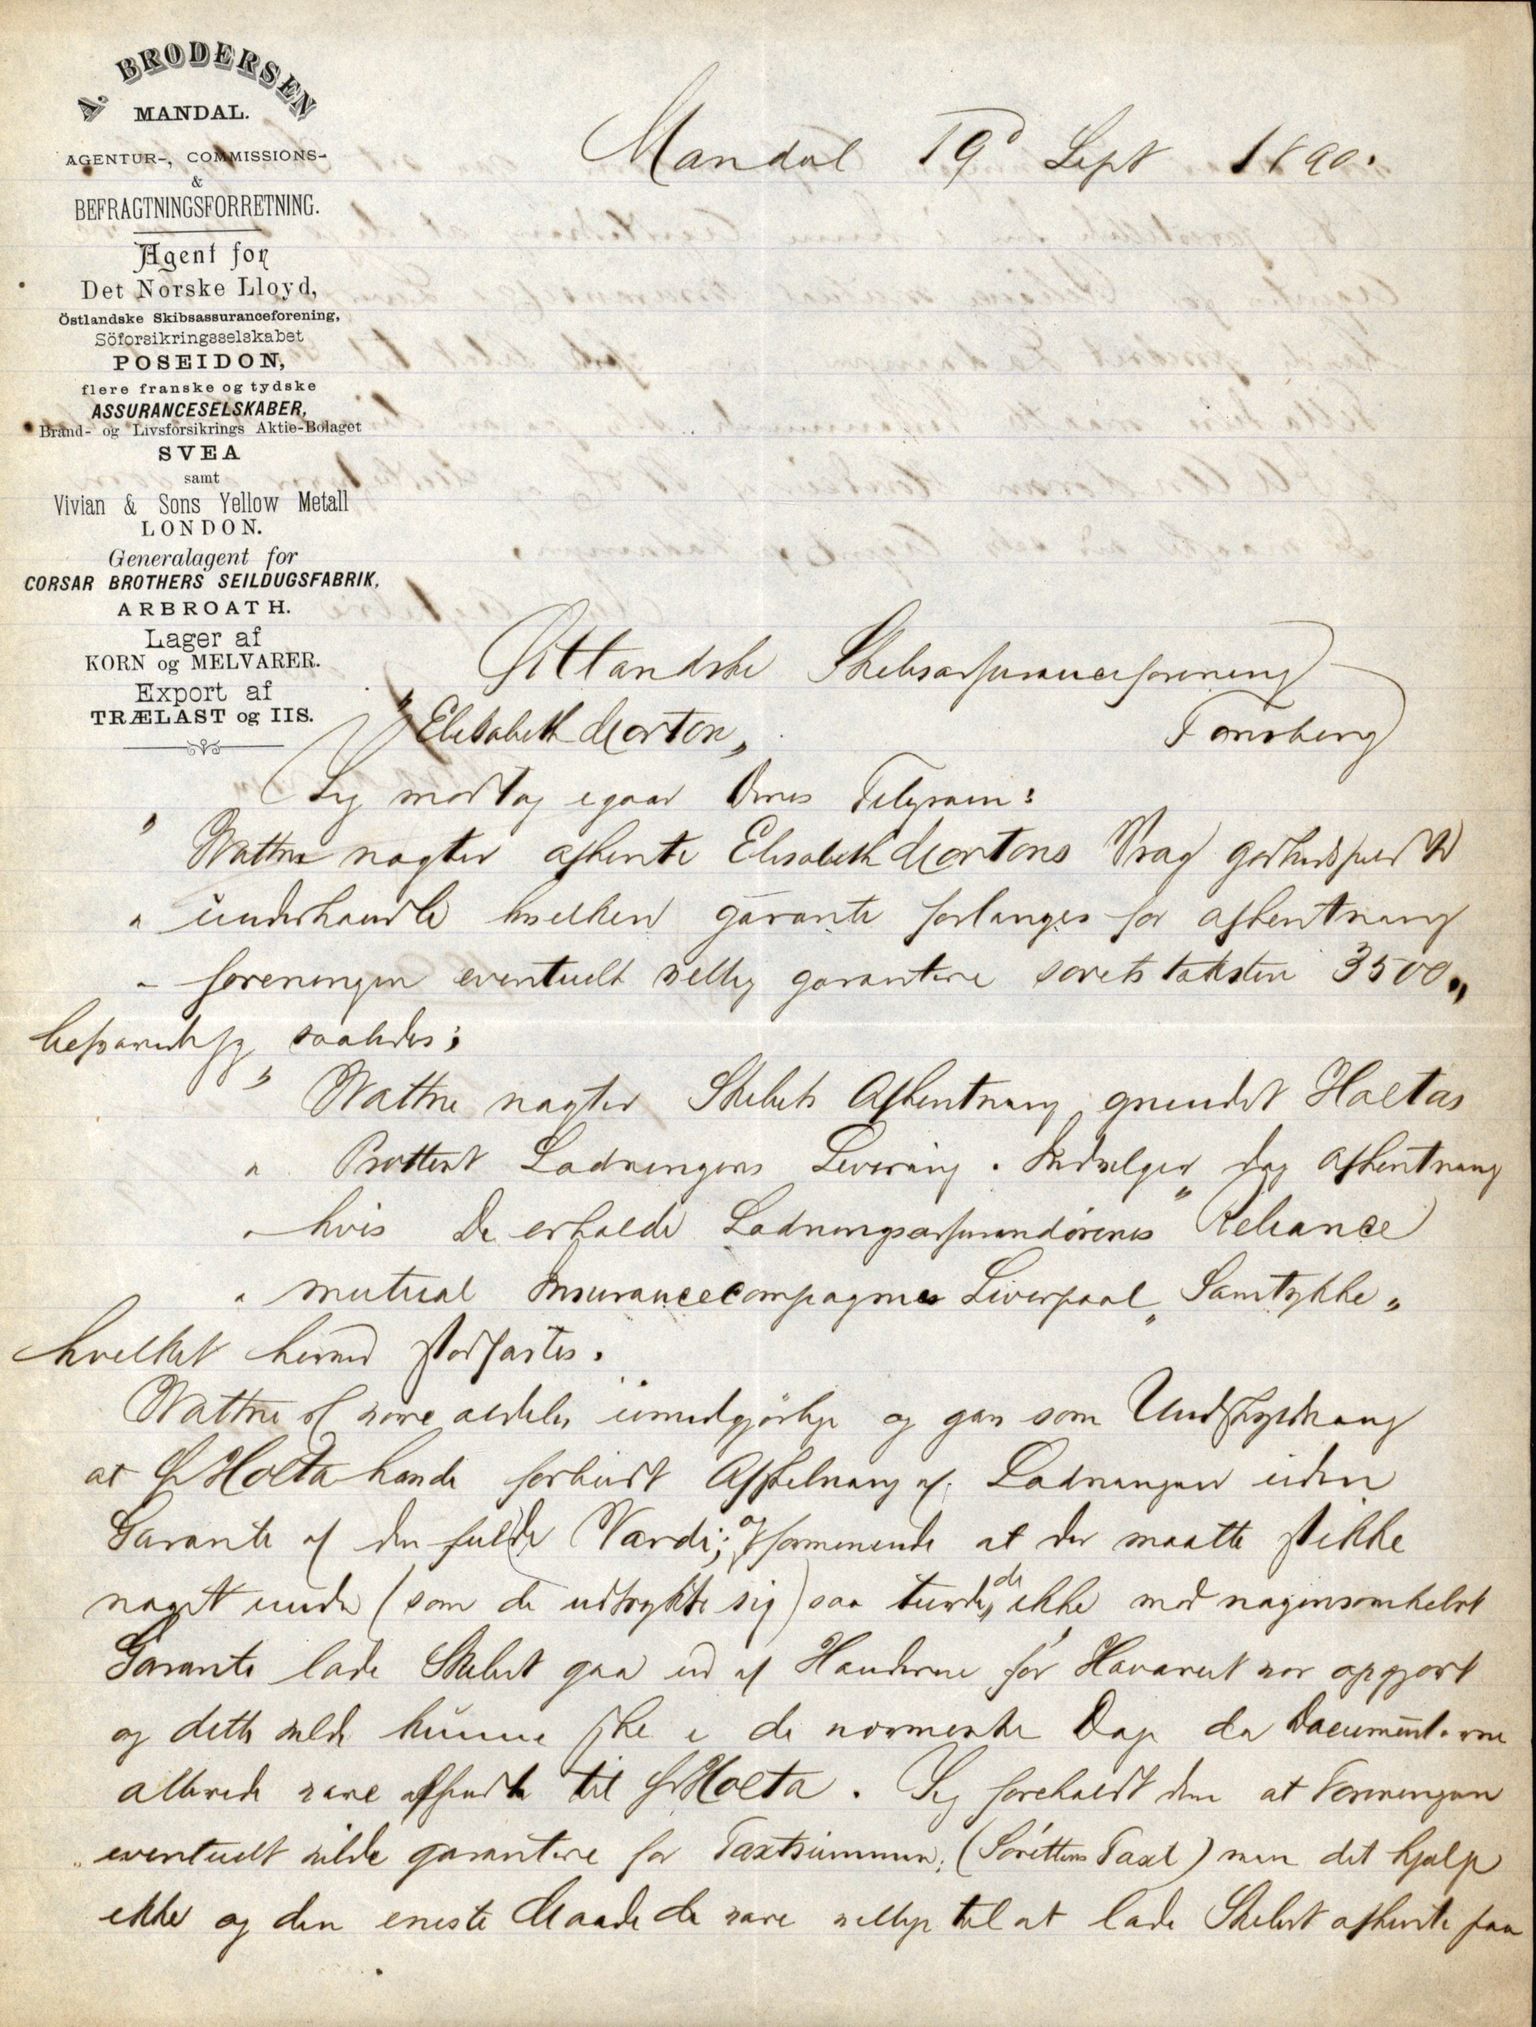 A. BRODERSEN
MANDAL.
AGENTUR-, COMMISSIONS-
&
BEFRAGTNINGSFORRETNING.
Agent for
Det Norske Lloyd,
Östlandske Skibsassuranceforening,
Söforsikringsselskabet
POSEIDON,
flere franske og tydske
ASSURANCESELSKABER,
Brand- og Livsforsikrings Aktie-Bolaget
SVEA
samt
Vivian & Sons Yellow Metall
LONDON.
Generalagent for
CORSAR BROTHERS SEILDUGSFABRIK,
ARBROATH.
Lager af
KORN og MELVARER.
Export af
TRÆLAST og IIS.
Mandal 19d Sept 1890.
Östlandske Skibsassuranceforening
Tönsberg
"Elisabeth Morton"
Jeg modtog igaar Deres Telegram:
" Wattne nægter afhente Elisabeth Mortons Vrag godhedsfuld
" underhandle hvilken garanti forlanges for afhentning
" foreningen eventuelt villig garantere sorets taksten 3500"
besvaredes saaledes:
" Wattne nægter Skibets Afhentning grundet Holtas
" Protest Ladningens Levering. Indvilger dog Afhentning
" hvis De erholde Ladningsassurandörernes "Reliance
" mutual Insurancecompagnie Liverpool" Samtykke"
hvilket herved stadfæstes.
Wattne & vare aldeles umedgjörlige og gav som Undskyldning
at Hr Holta havde forbudt Afskibning af Ladningen uden
Garanti af den fulde Værdi; og formenende at der maatte stikke
noget under (som de udtrykte sig) saa turde de ikke mod nogensomhelst
Garanti lade Skibet gaa ud af Hænderne för Havariet var opgjort
og dette vilde kunne ske i de nærmeste Dage da Documenterne
allerede vare afsendte til Hr Holta. Jeg foreholdt dem at Foreningen
eventuelt vilde garantere for Taxtsummen, (Sörettens Taxt) men det hjalp
ikke og den eneste Maade de vare villige til at lade Skibet afhente paa